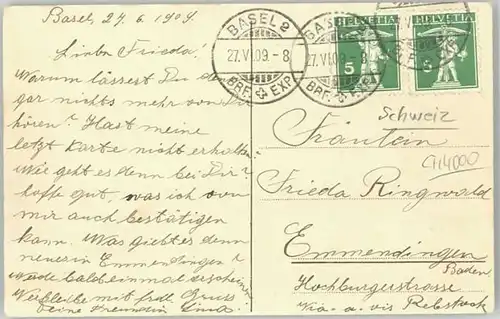 Basel 27.6.1909.
Liebe Frieda!
Warum lässest Du denn
gar nichts mehr von Dir
hören? Hast meine
letzt Karte nicht erhalten
Wie geht es denn bei Dir?
hoffe gut, was ich von
mir auch bestätigen
kann. Was giebt es denn
neues in Emmendingen?
Werde bald einmal erscheinen
Verbleibe mit frdl. Gruss
Deine Freundin Lina.
BASEL 2
27.VI.09.-8
BRF. EXP.
BASEL 2
27.VI.09.-8
BRF. EXP.
HELVETIA
5
HELVETIA
5
Schweiz
Fräulein
914000
Frieda Ringwald
Emmendingen
Baden
Hochburgerstrasse
vis-a-vis Rebstock